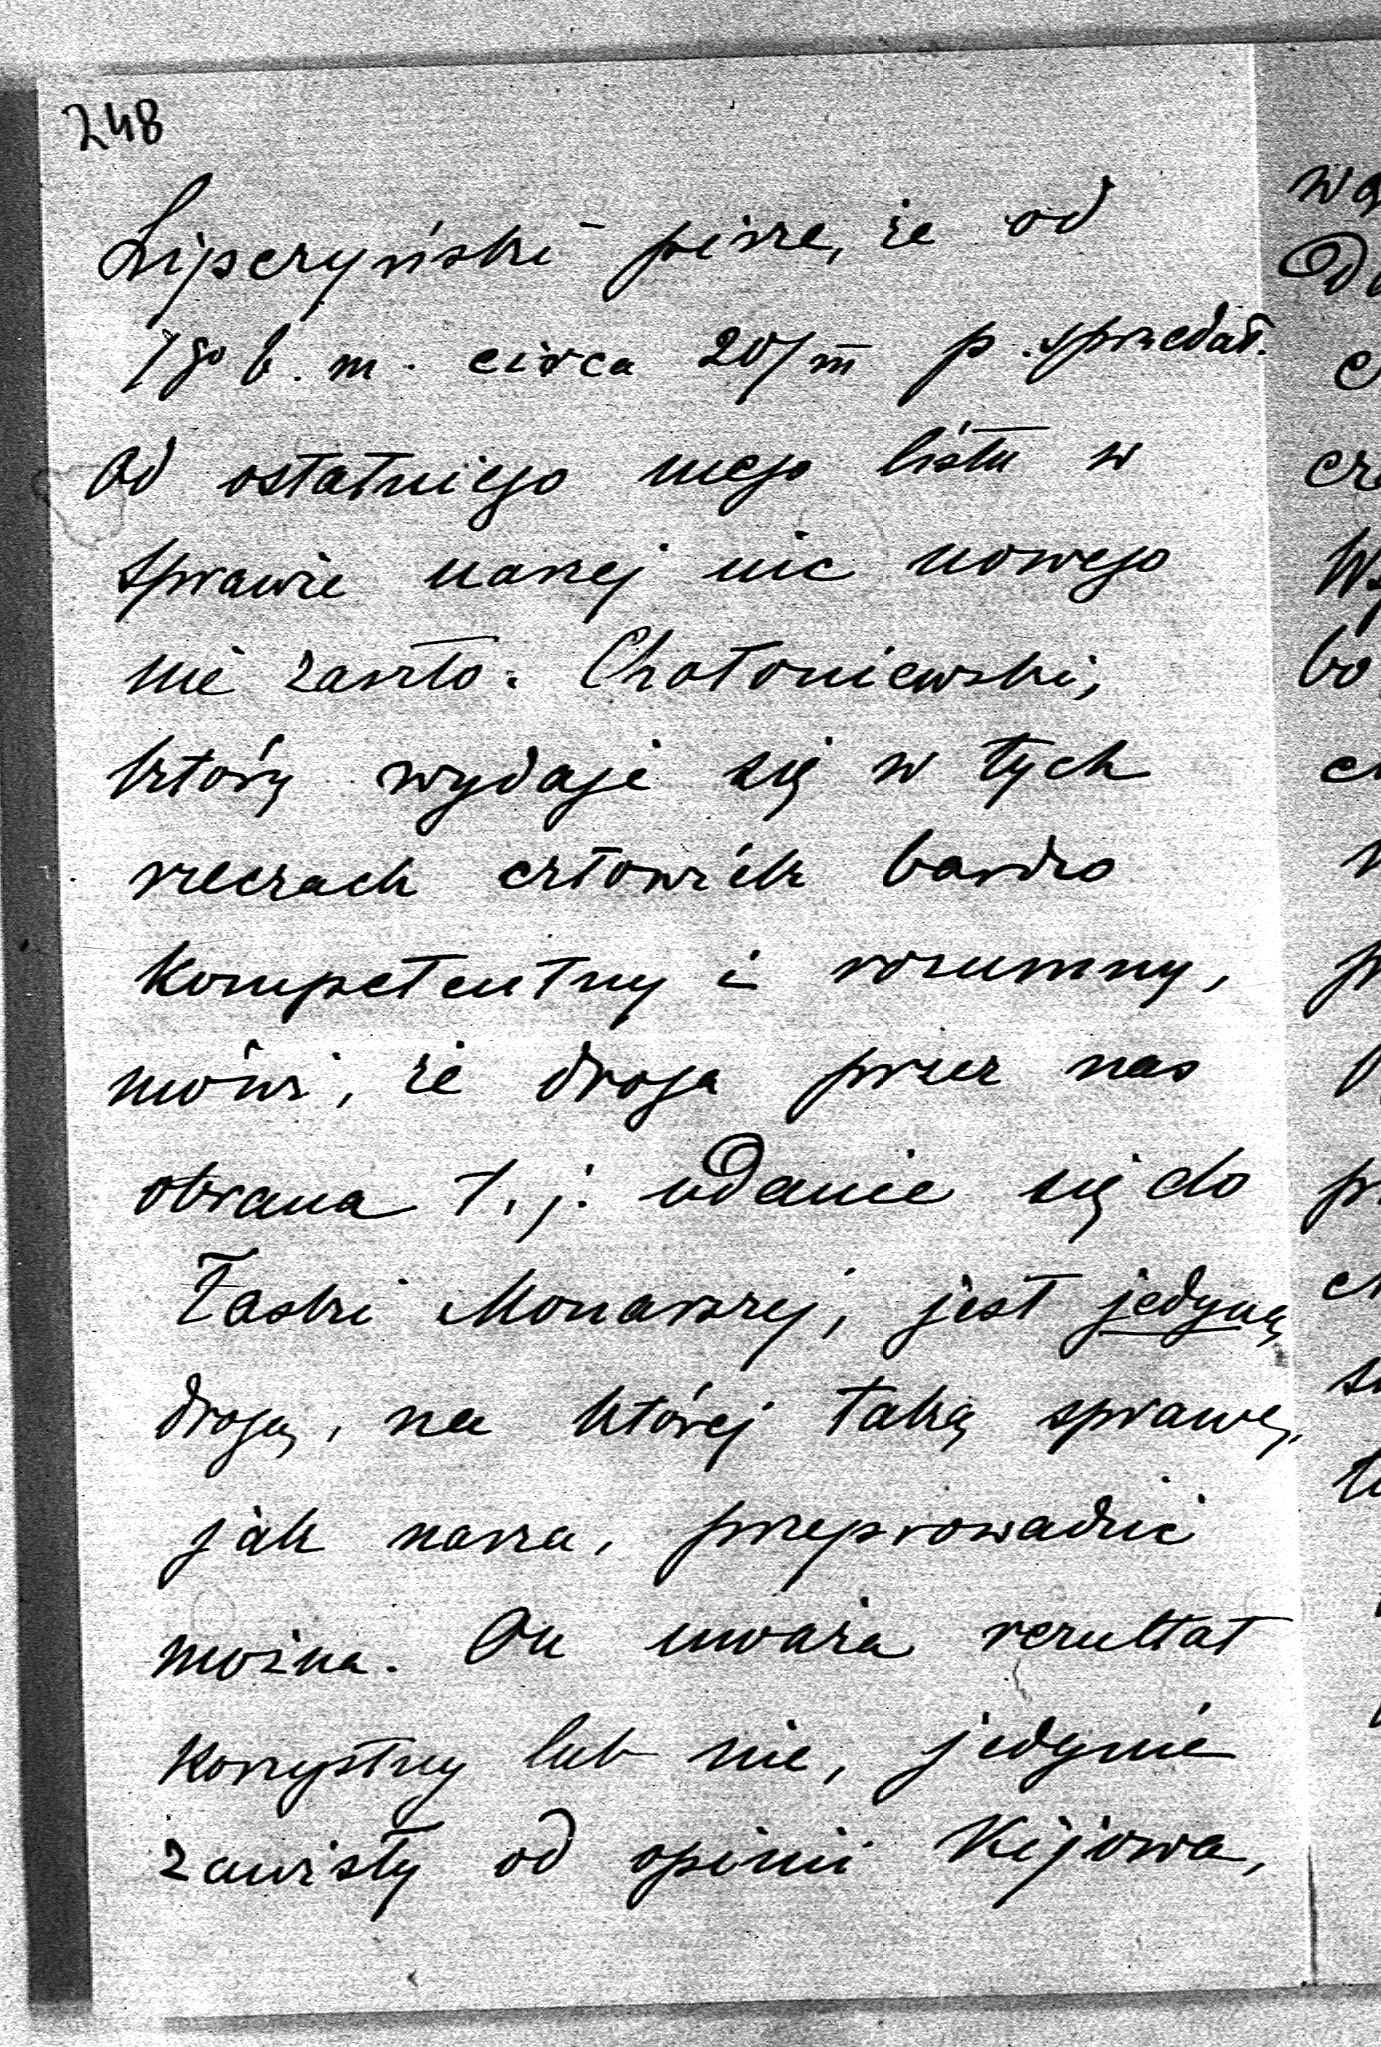 248
Lipczyński pisze, że od
1go b. m. circa 20/m p. sprzedał.
Od ostatniego mego listu w
sprawie naszej nic nowego
nie zaszło. Chołoniewski,
który wydaje się w tych
rzeczach człowiek bardzo
kompetentny i rozumny,
mówi, że droga przez nas
obrana t. j. udanie się do
Łaski Monarszej, jest jedyną
drogą, na której taką sprawę,
jak nasza, przeprowadzić
można. On uważa rezultat
korzystny lub nie, jedynie
zawisły od opinii Kijowa,